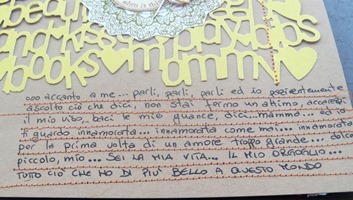 beautiful
kisses
books mommy
...accanto a me... parli, parli, parli ed io pazientemente
ascolto ciò che dici, non stai fermo un attimo, accarezzi
il mio viso, baci le mie guance, dici...mamma... ed io
ti guardo innamorata... innamorata come mai... innamorata
per la prima volta di un amore troppo grande... dolce
piccolo, mio... SEI LA MIA VITA... IL MIO ORGOGLIO...
TUTTO CIÒ CHE HO DI PIU' BELLO A QUESTO MONDO